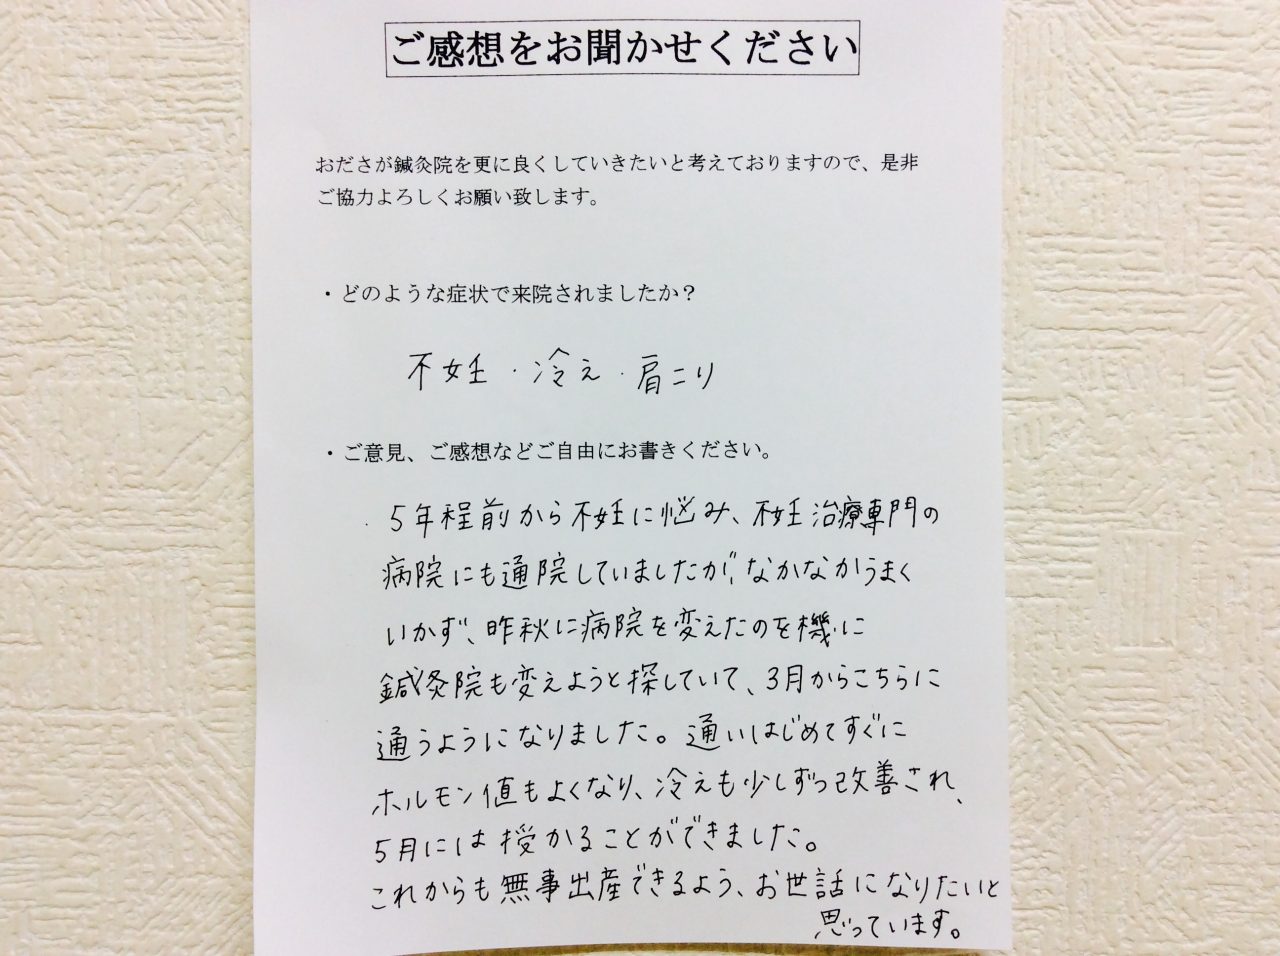 ご感想をお聞かせください
おださが鍼灸院を更に良くしていきたいと考えておりますので、是非
ご協力よろしくお願い致します。
・どのような症状で来院されましたか？
不妊・冷え・肩こり
・ご意見、ご感想などご自由にお書きください。
5年程前から不妊に悩み、不妊治療専門の
病院にも通院していましたが、なかなかうまく
いかず、昨秋に病院を変えたのを機に
鍼灸院も変えようと探していて、3月からこちらに
通うようになりました。通いはじめてすぐに
ホルモン値もよくなり、冷えも少しずつ改善され、
5月には授かることができました。
これからも無事出産できるよう、お世話になりたいと
思っています。